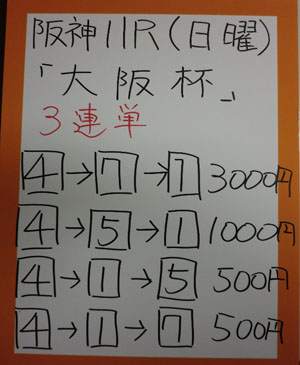 阪神11R(日曜)
「大阪杯」
3連単
4→7→1 3000円
4→5→1 1000円
4→1→5 500円
4→1→7 500円